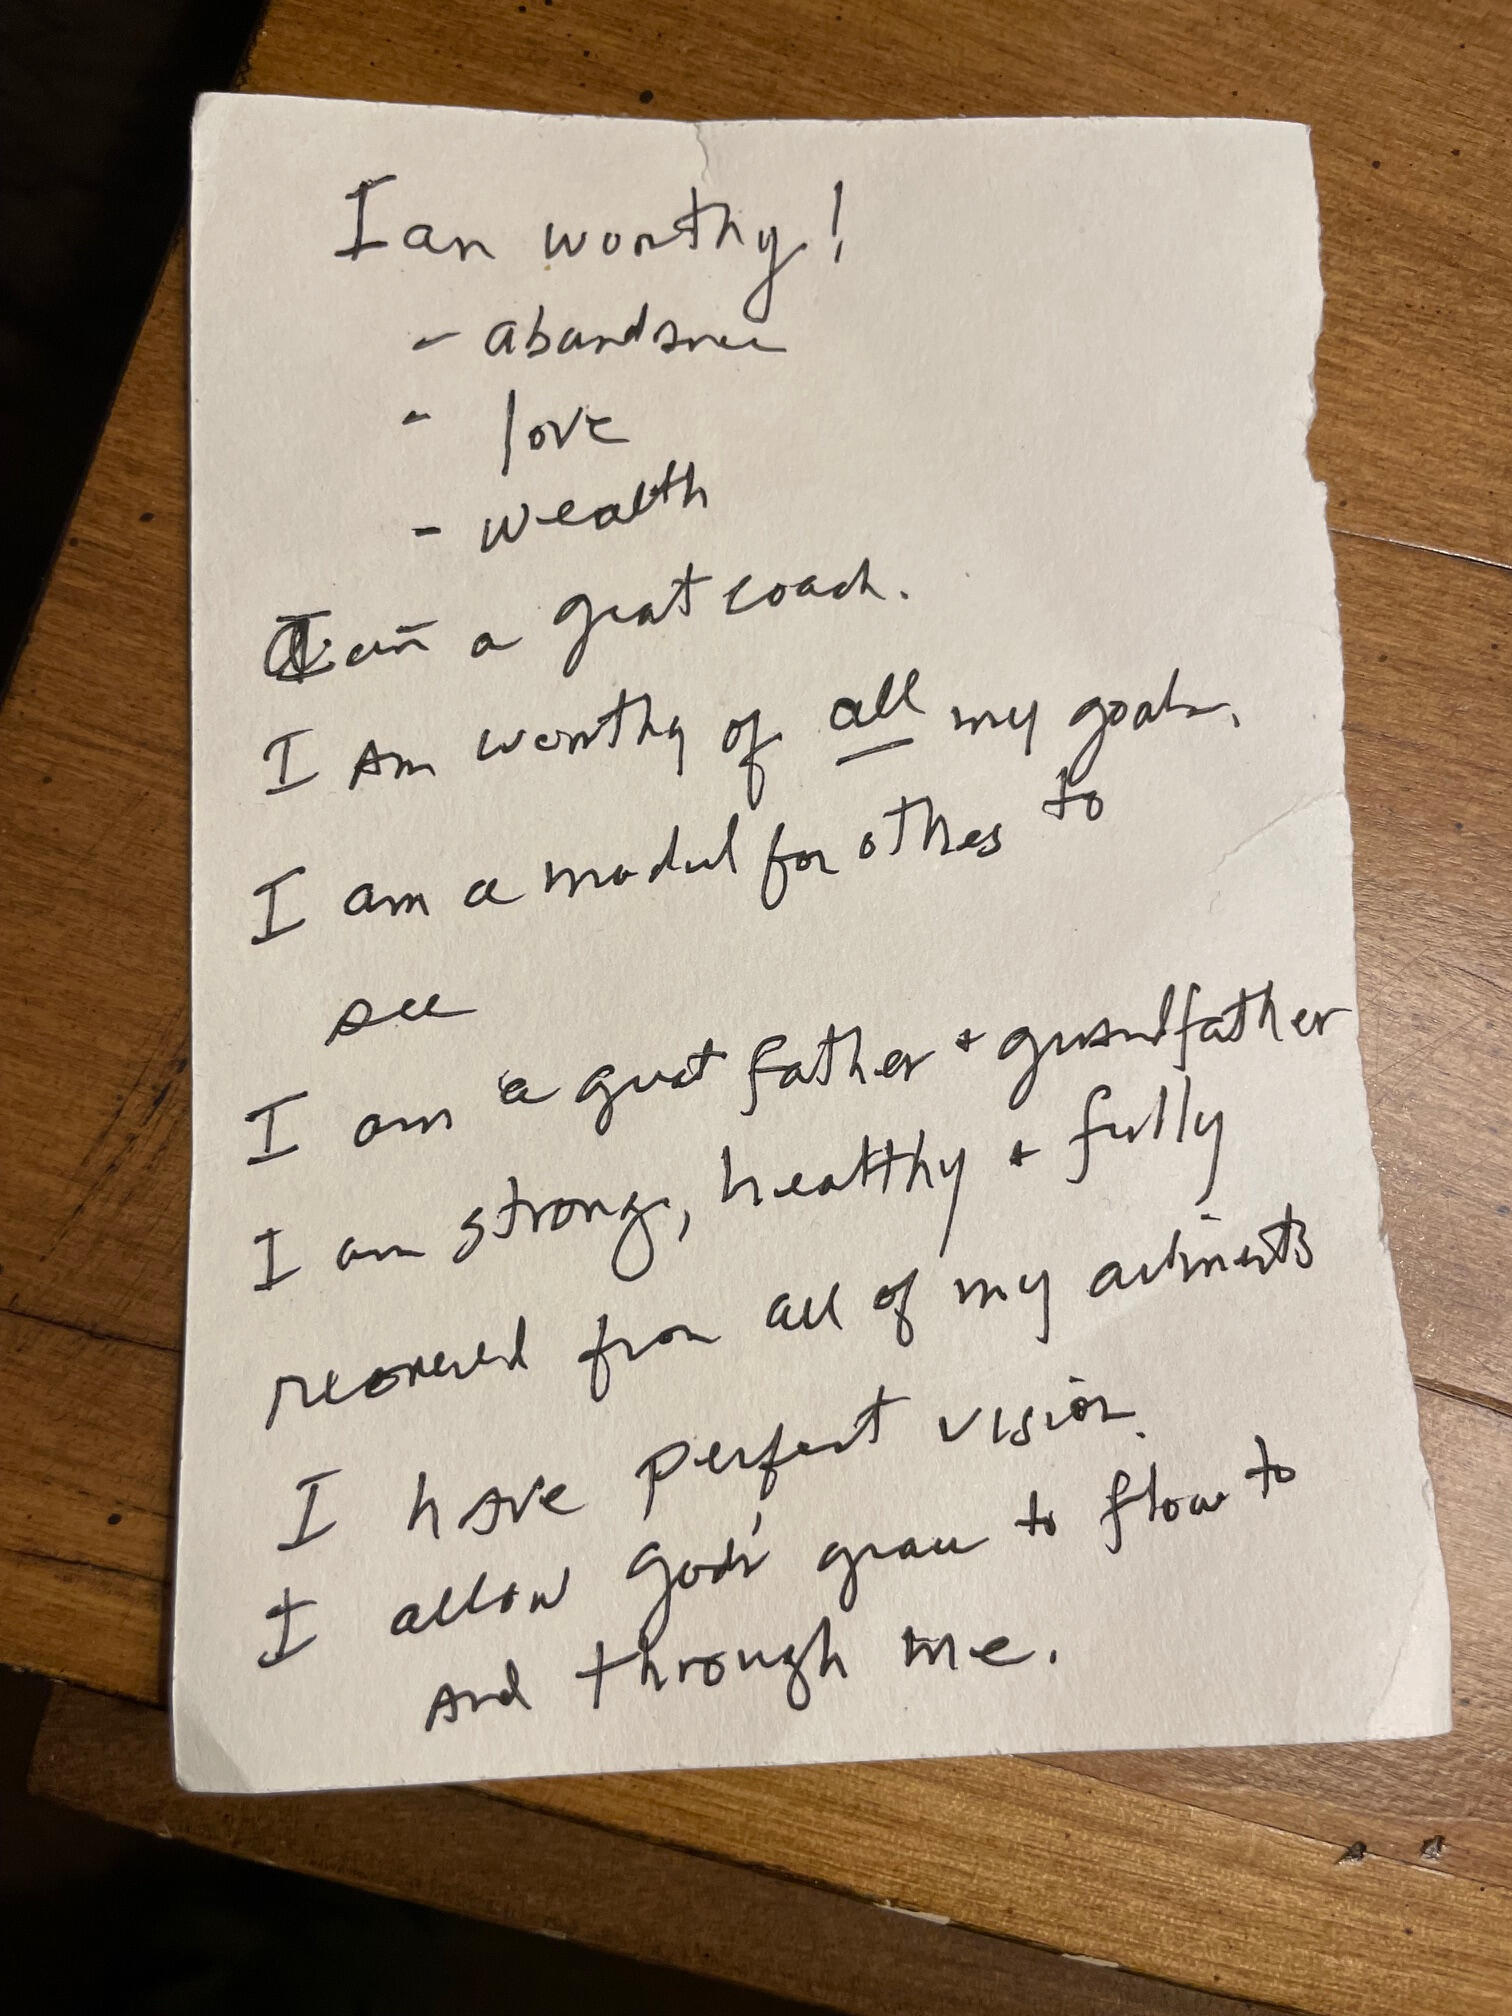 I am worthy!
- abundance
- love
- wealth
I am a great coach.
I am worthy of all my goals.
I am a model for others to
see
I am a great father + grandfather
I am strong, healthy + fully
recovered from all of my ailments
I have perfect vision.
I allow God's grace to flow to
and through me.